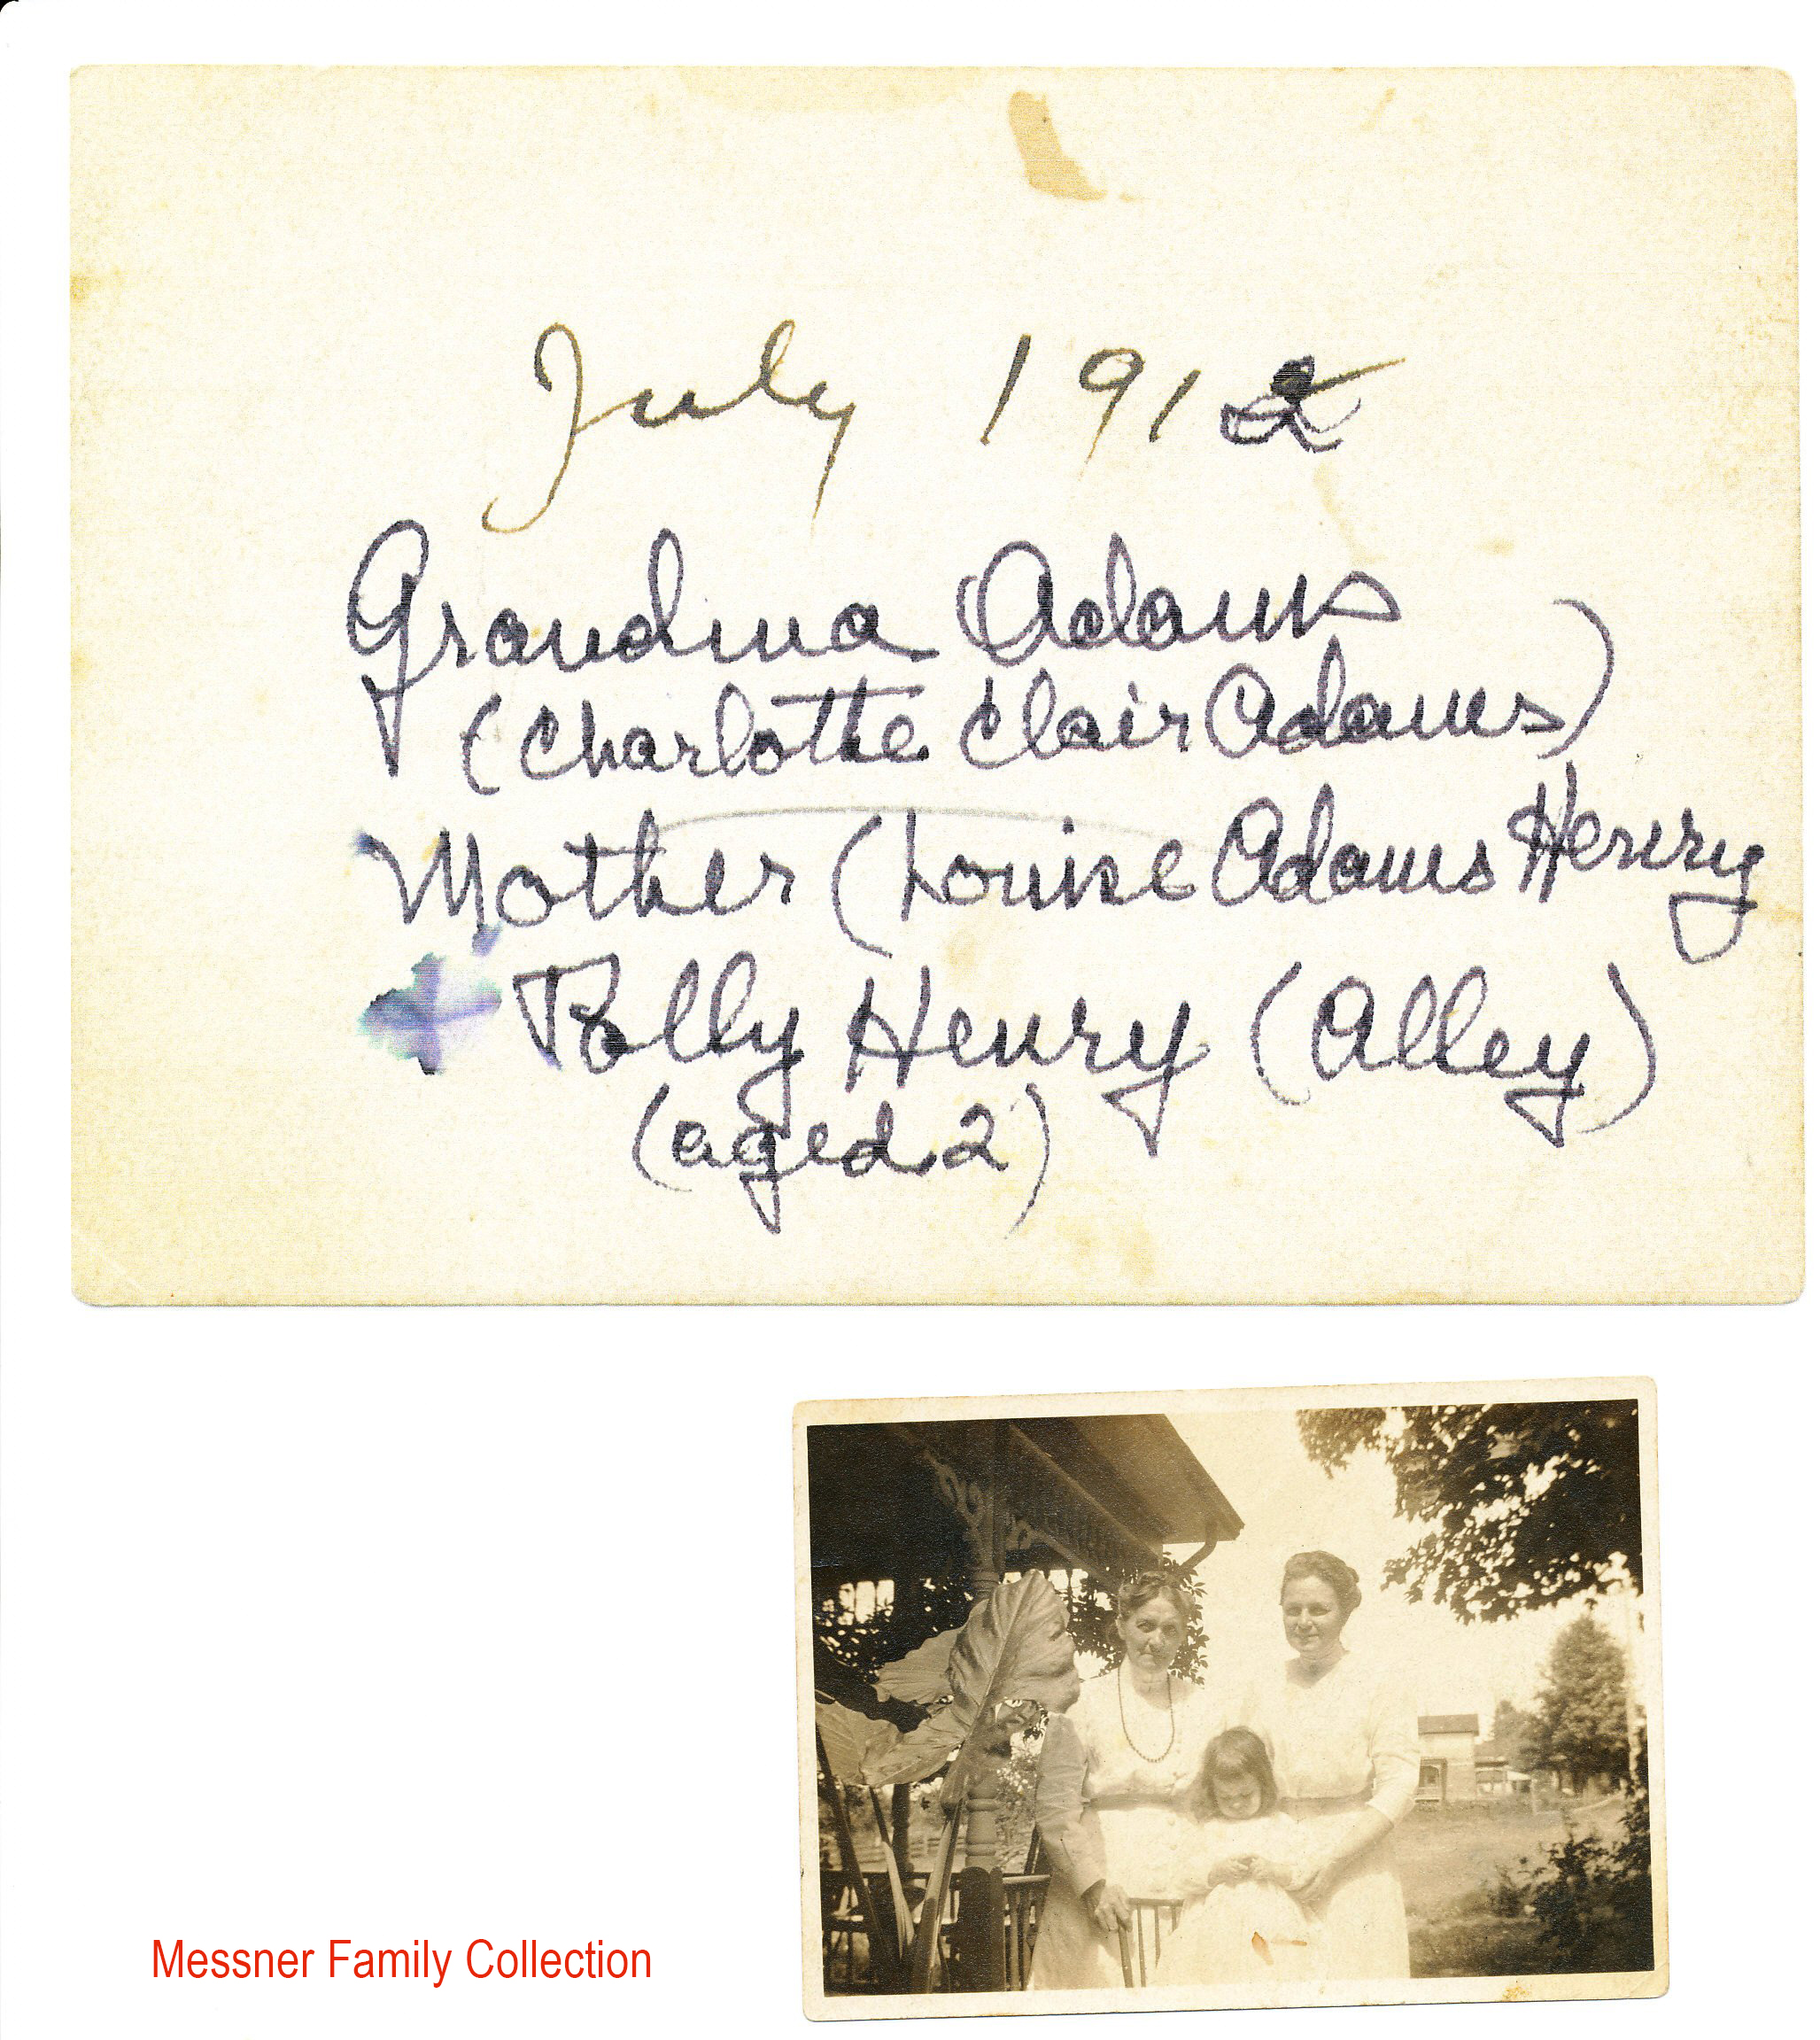 July 1912
Grandma Adams
(Charlotte Clair Adams)
Mother (Louise Adams Henry
Polly Henry (Alley)
(aged 2)
Messner Family Collection